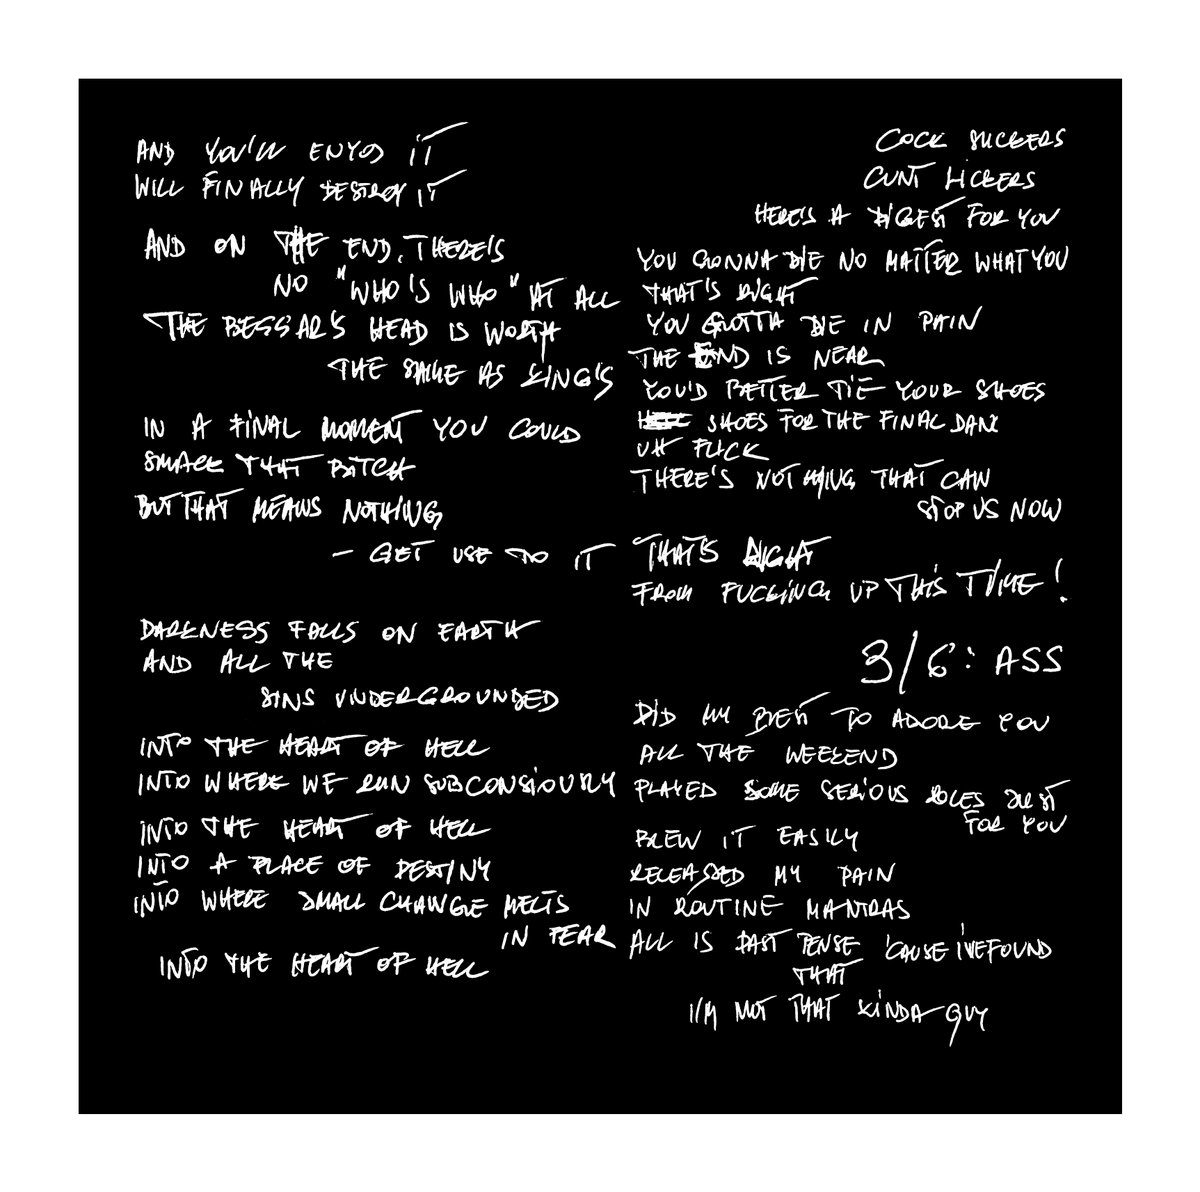 AND YOU'LL ENYOJ IT
WILL FINALLY DESTROY IT
AND ON THE END, THERE'S
NO "WHO'S WHO" AT ALL
THE BEGGAR'S HEAD IS WORTH
THE SAME AS KING'S
IN A FINAL MOMENT YOU COULD
SMACK THAT BITCH
BUT THAT MEANS NOTHING
- GET USE TO IT
DARKNESS FALLS ON EARTH
AND ALL THE
SINS UNDERGROUNDED
INTO THE HEART OF HELL
INTO WHERE WE RUN SUBCONSIOUSLY
INTO THE HEART OF HELL
INTO A PLACE OF DESTINY
INTO WHERE SMALL CHANGE MELTS
IN FEAR
INTO THE HEART OF HELL
COCK SUCKERS
CUNT LICKERS
HERE'S A DIGEST FOR YOU
YOU GONNA DIE NO MATTER WHAT YOU
THAT'S RIGHT
YOU GOTTA DIE IN PAIN
THE END IS NEAR
YOU'D BETTER TIE YOUR SHOES
SHOES FOR THE FINAL DANCE
UH FUCK
THERE'S NOTHING THAT CAN
STOP US NOW
THAT'S RIGHT
FROM FUCKING UP THIS TIME!
3/6: ASS
DID MY BEST TO ADORE YOU
ALL THE WEEKEND
PLAYED SOME SERIOUS ROLES JUST
FOR YOU
BLEW IT EASILY
RELEASED MY PAIN
IN ROUTINE MANTRAS
ALL IS PAST TENSE 'CAUSE I'VE FOUND
THAT
I'M NOT THAT KINDA GUY